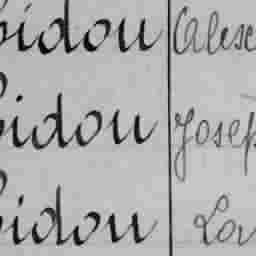 bidou Alex
bidou Josep
bidou Lou